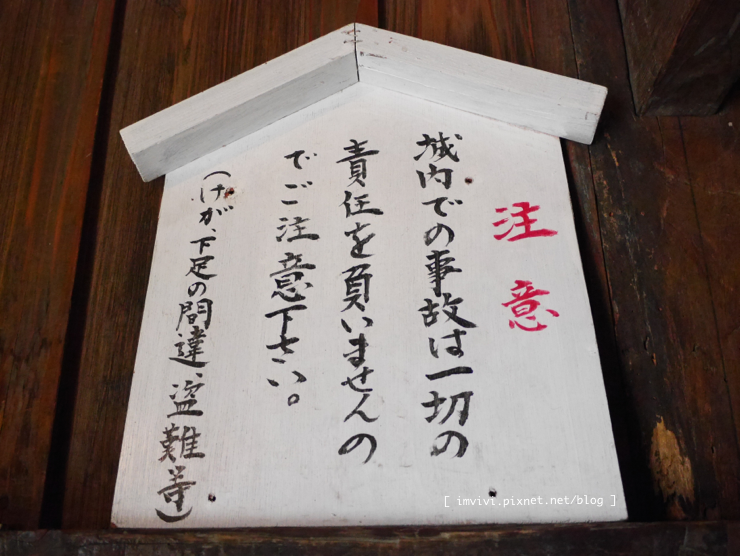 注意
城内での事故は一切の
責任を負いませんの
でご注意下さい。
(けが、下足の間違、盗難等)
[ imvivi.pixnet.net/blog ]